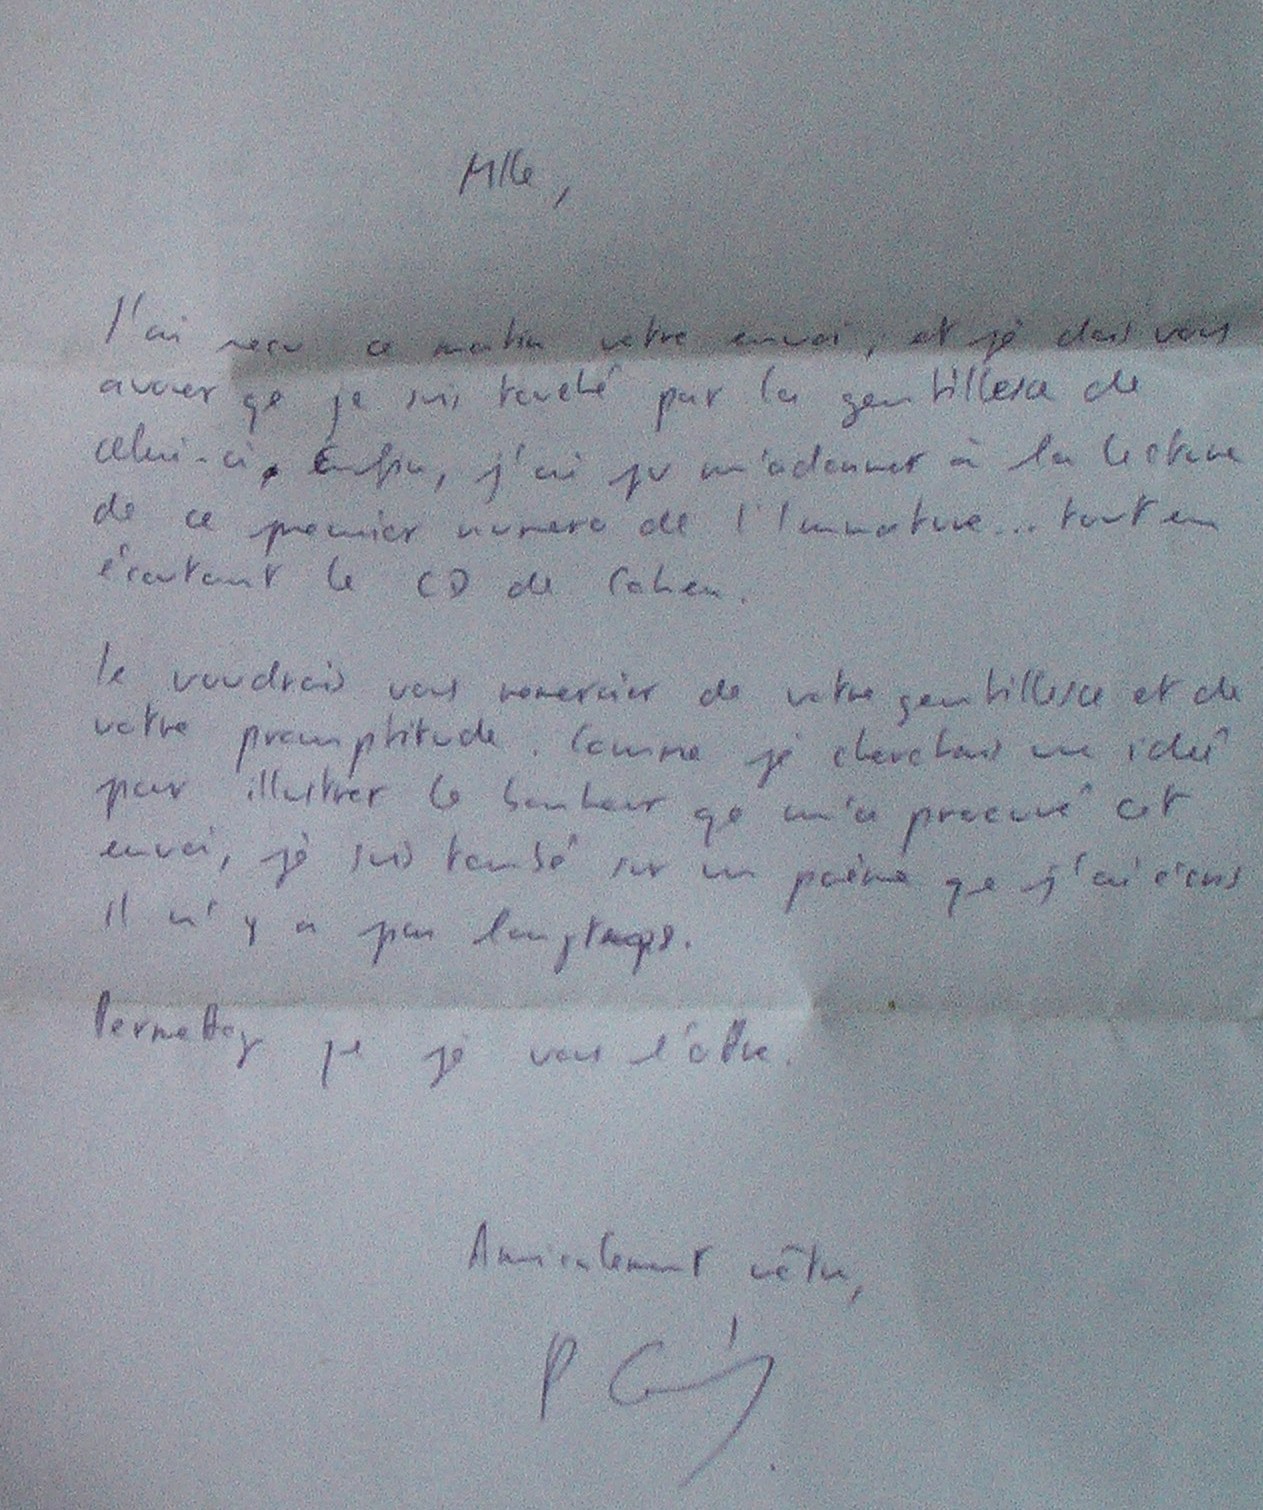 Mlle,
J'ai reçu ce matin votre envoi, et je dois vous
avouer qe je suis touché par la gentillesse de
celui-ci. Enfin, j'ai pu m'adonner à la lecture
de ce premier numero de l'Immature... tout en
écoutant le CD de Cohen.
Je voudrais vous remercier de votre gentillesse et de
votre promptitude. Comme je cherchais une idée
pour illustrer le bonheur qe m'a procuré cet
envoi, je suis tombé sur un poème qe j'ai écrit
il n'y a pas longtemps.
Permettez qe je vous l'offre.
Amicalement vôtre,
P